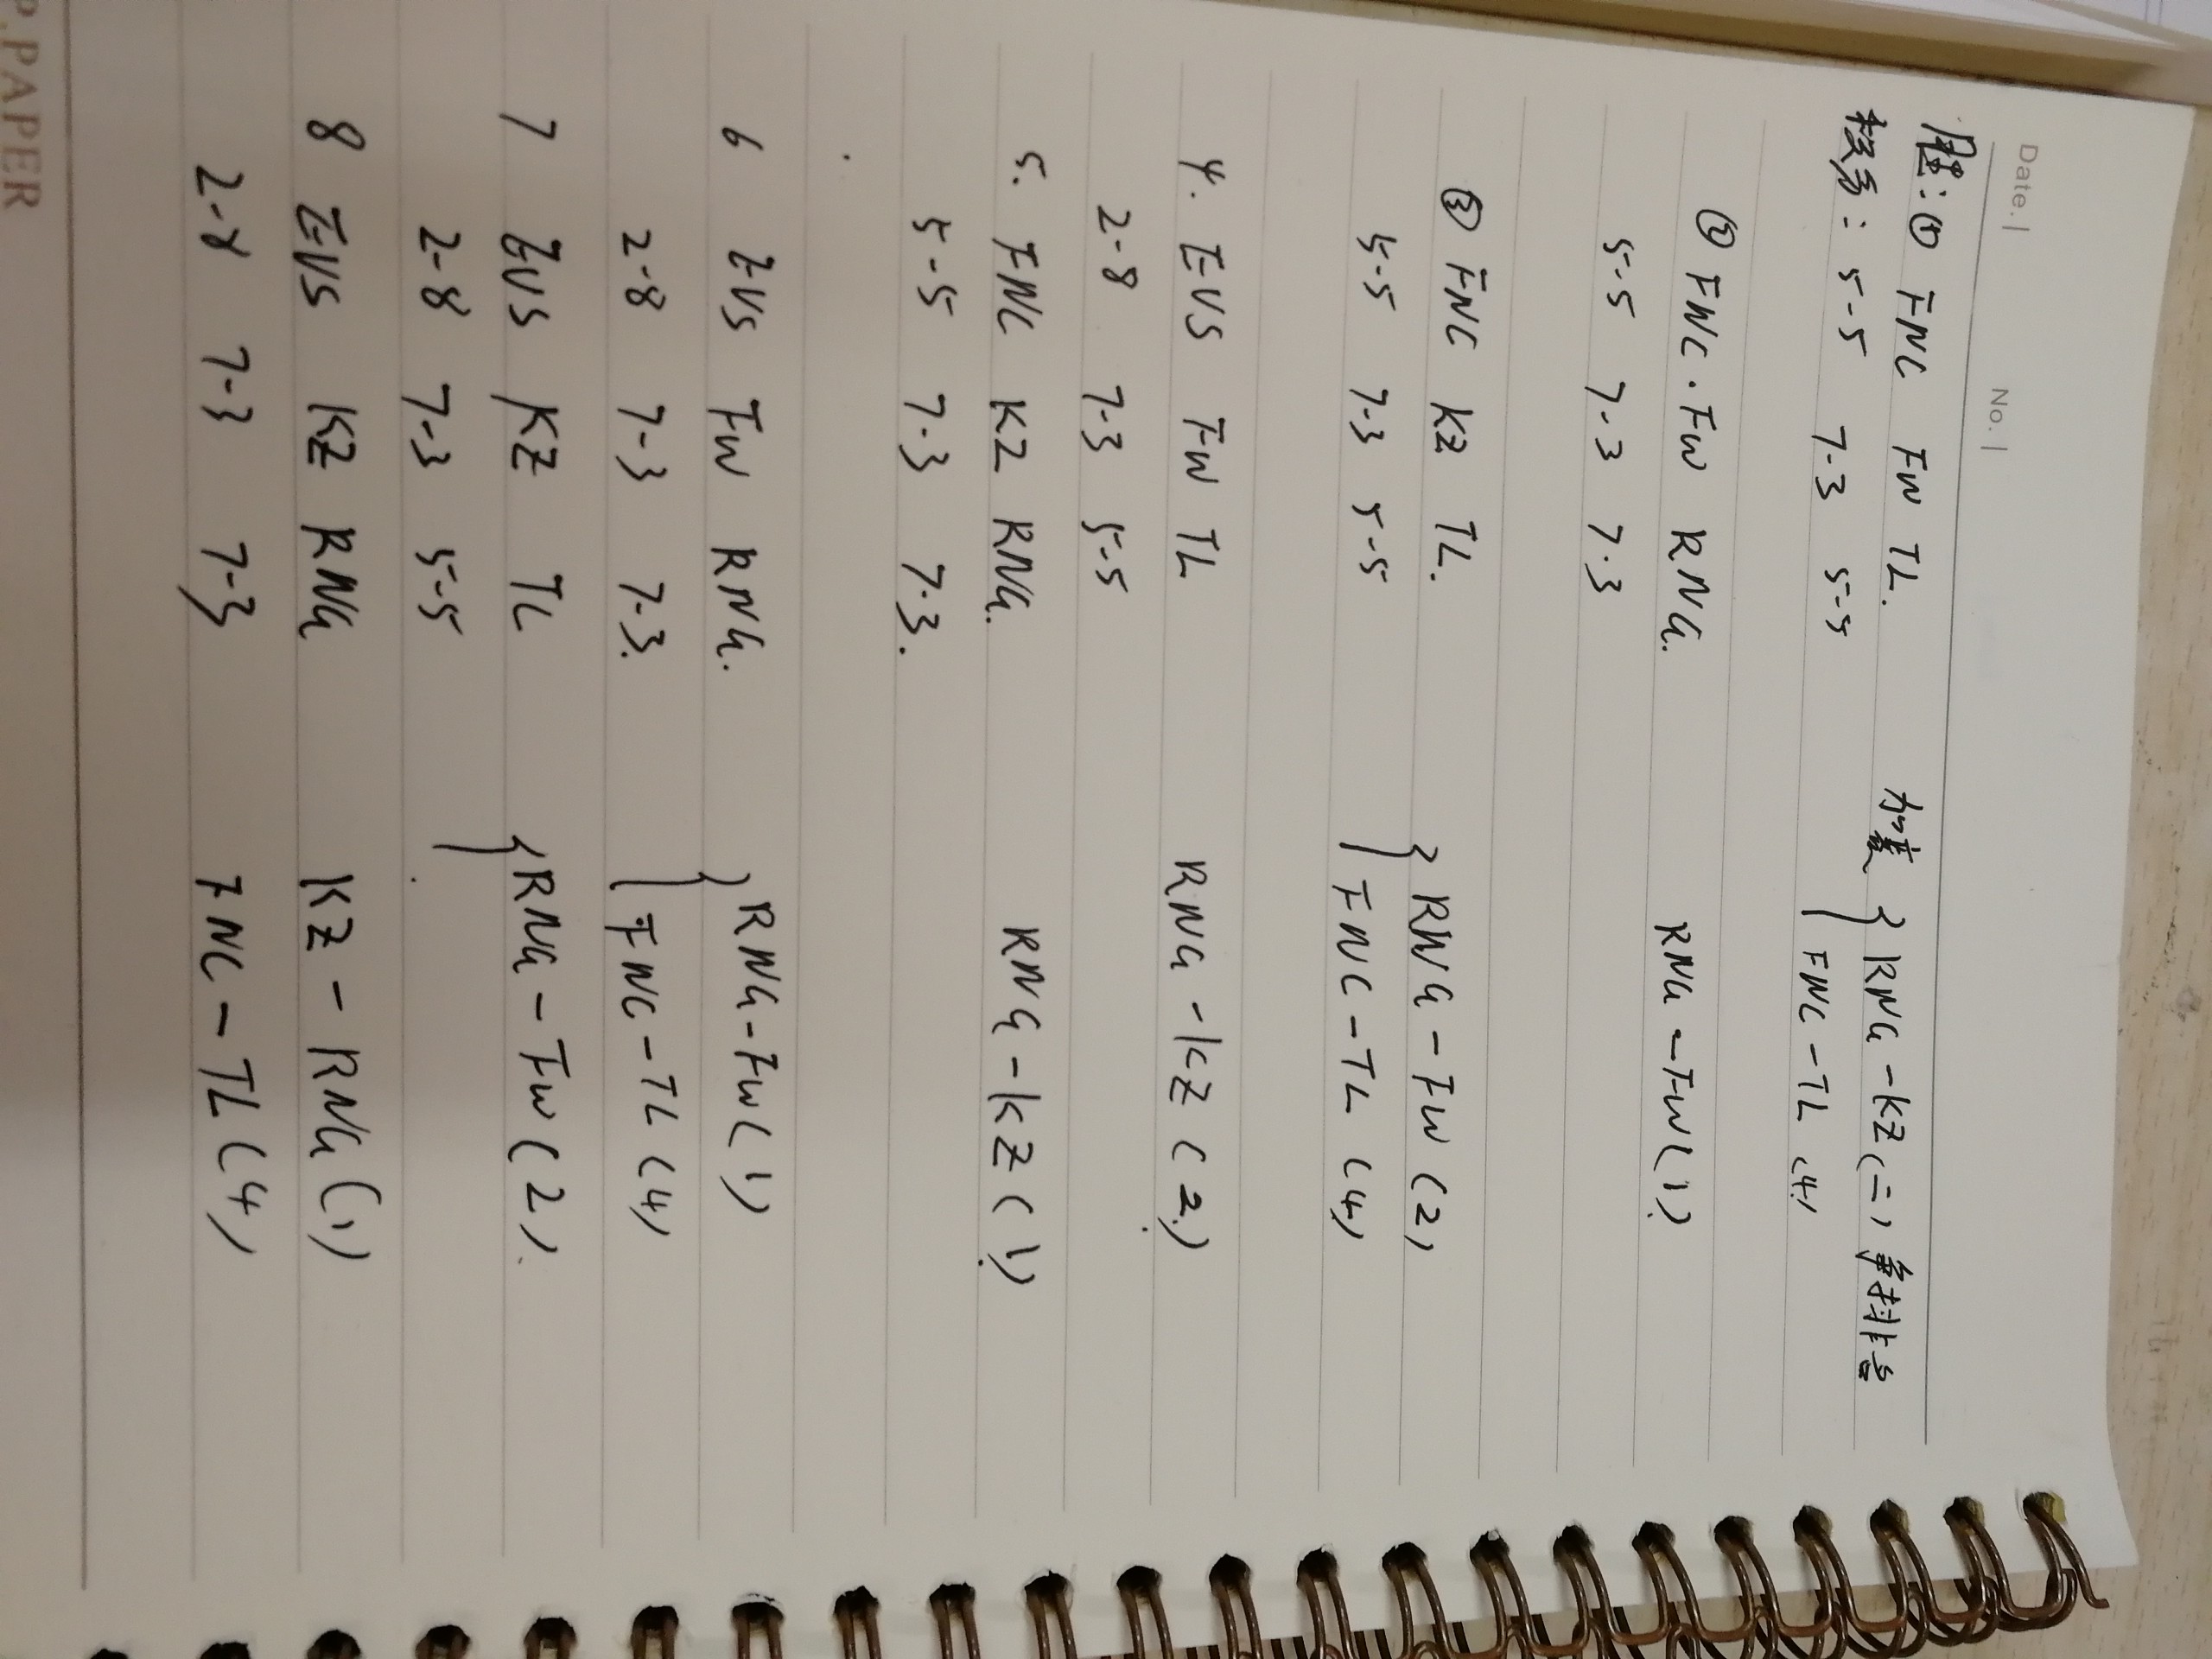 Date. No.
① FNC FW TL. 加赛 RNG - KZ (二) 争抖非号
5-5 7-3 5-5 FNC - TL (4)
② FNC. FW RNG. RNG - FW (1)
5-5 7-3 7-3
③ FNC KZ TL. RNG - FW (2)
5-5 7-3 5-5 FNC - TL (4)
4. EVS FW TL RNG - KZ (2)
2-8 7-3 5-5
5. FNC KZ RNG. RNG - KZ (1)
5-5 7-3 7-3.
6 EVS FW RNG. RNG - FW (1)
2-8 7-3 7-3. FNC - TL (4)
7 EVS KZ TL RNG - FW (2).
2-8 7-3 5-5
8 EVS KZ RNG KZ - RNG (1)
2-8 7-3 7-3 FNC - TL (4)
P.PAPER